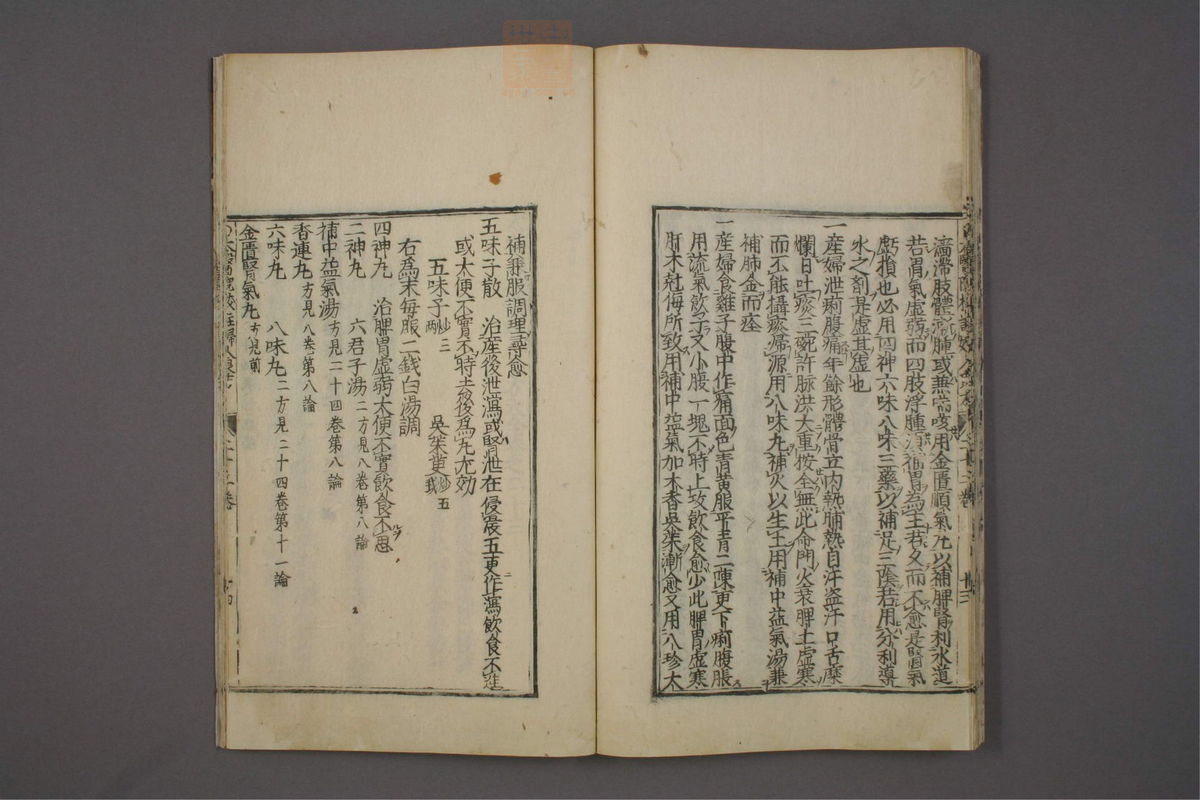 濇滯肢體浮腫或兼喘咳用金匱順氣丸以補脾腎利水道
若胃氣虛弱而四肢浮腫須補胃為主若久而不愈是腎氣
虧損也必用四神六味八味三藥以補足三陰若用分利導
水之劑是虛其虛也
一産婦泄痢腹痛年餘形體骨立内熱晡熱自汗盗汗口舌糜
爛日吐痰三碗許脉洪大重按全無此命門火衰脾土虛寒
而不能攝痰歸源用八味丸補火以生土用補中益氣湯兼
補肺金而痊
一産婦食雞子腹中作痛面色青黄服平胃二陳更下痢腹脹
用流氣飲子又小腹一塊不時上攻飲食愈少此脾胃虛寒
肝木尅侮所致用補中益氣加木香吳茱漸愈又用八珍大
補兼服調理尋愈
五味子散 治産後泄瀉或腎泄在侵晨五更作瀉飲食不進
或大便不實不時去後為丸尤効
五味子炒三兩 吳茱萸炒五錢
右為末每服二錢白湯調
四神丸 治脾胃虛弱大便不實飲食不思
二神丸 六君子湯二方見八卷第八論
補中益氣湯方見二十四卷第八論
香連丸方見八卷第八論
六味丸 八味丸二方見二十四卷第十一論
金匱腎氣丸方見前
二十三卷